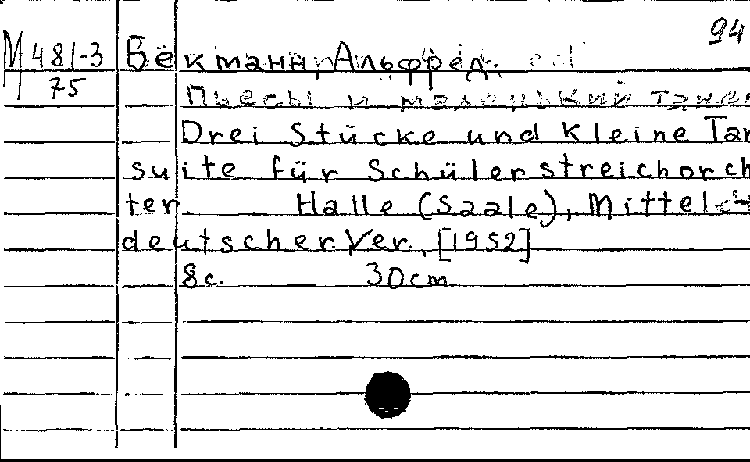 94
М 481-3 Бекманн, Альфред.
75
Пьесы и маленький танец
Drei Stücke und kleine Tan
suite für Schülerstreichorch
ter. Halle (Saale), Mittel-
deutscher Ver., [1952]
8c. 30cm